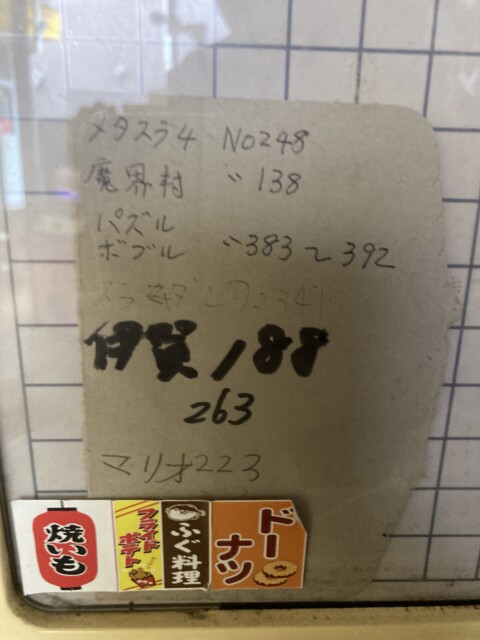 メタスラ4 No248
魔界村 〃138
パズル
ボブル 〃383〜392
伊賀188
263
マリオ223
焼いも
フライド
ポテト
ふぐ料理
ドー
ナツ